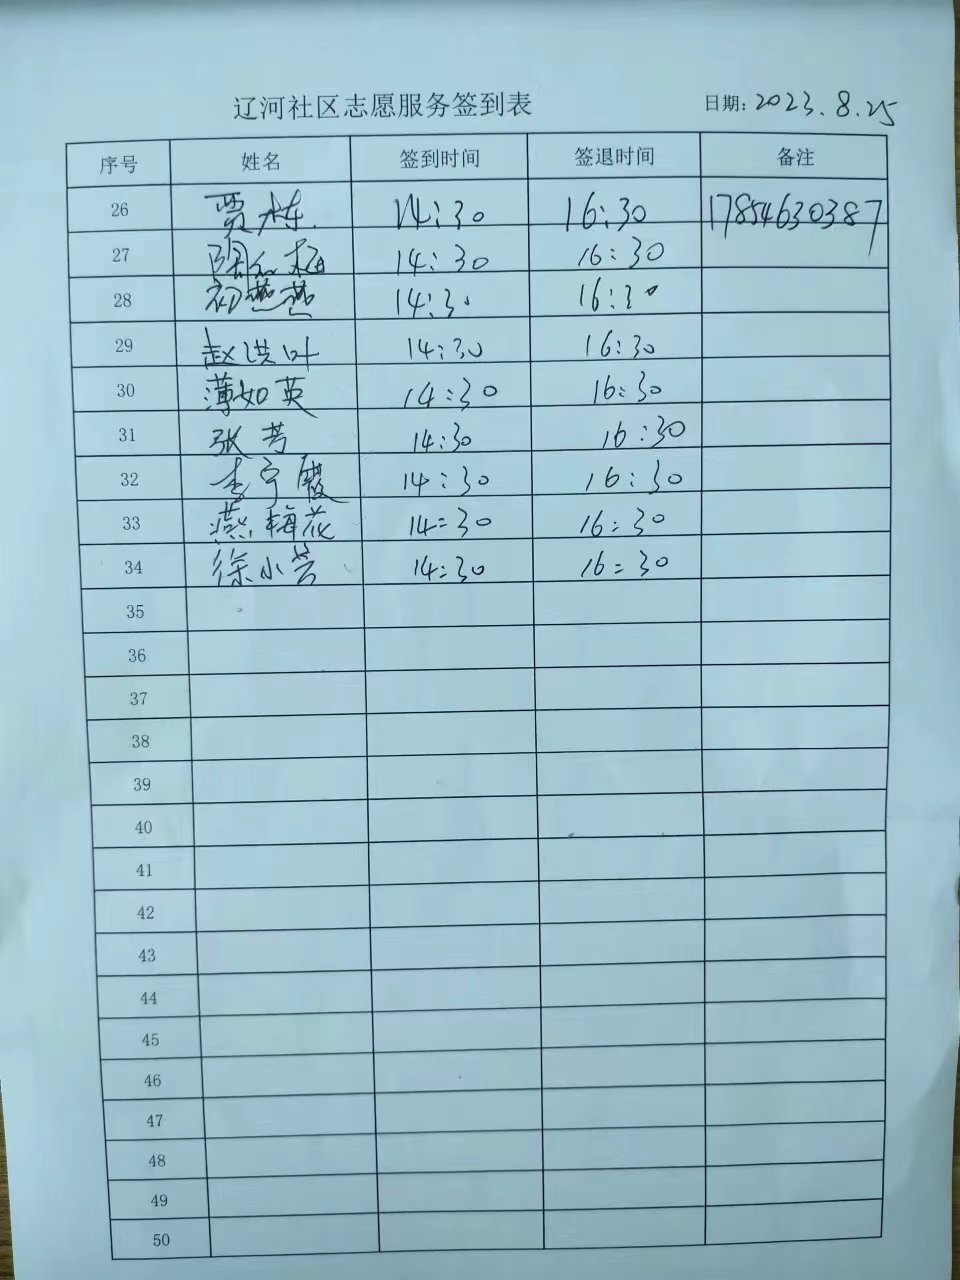 辽河社区志愿服务签到表 日期：2023.8.25
序号 姓名 签到时间 签退时间 备注
26 贾栋 14:30 16:30 17854630387
27 14:30 16:30
28 初燕燕 14:30 16:30
29 赵洪叶 14:30 16:30
30 薄如英 14:30 16:30
31 张芳 14:30 16:30
32 李宁霞 14:30 16:30
33 燕梅花 14:30 16:30
34 徐小芳 14:30 16:30
35
36
37
38
39
40
41
42
43
44
45
46
47
48
49
50